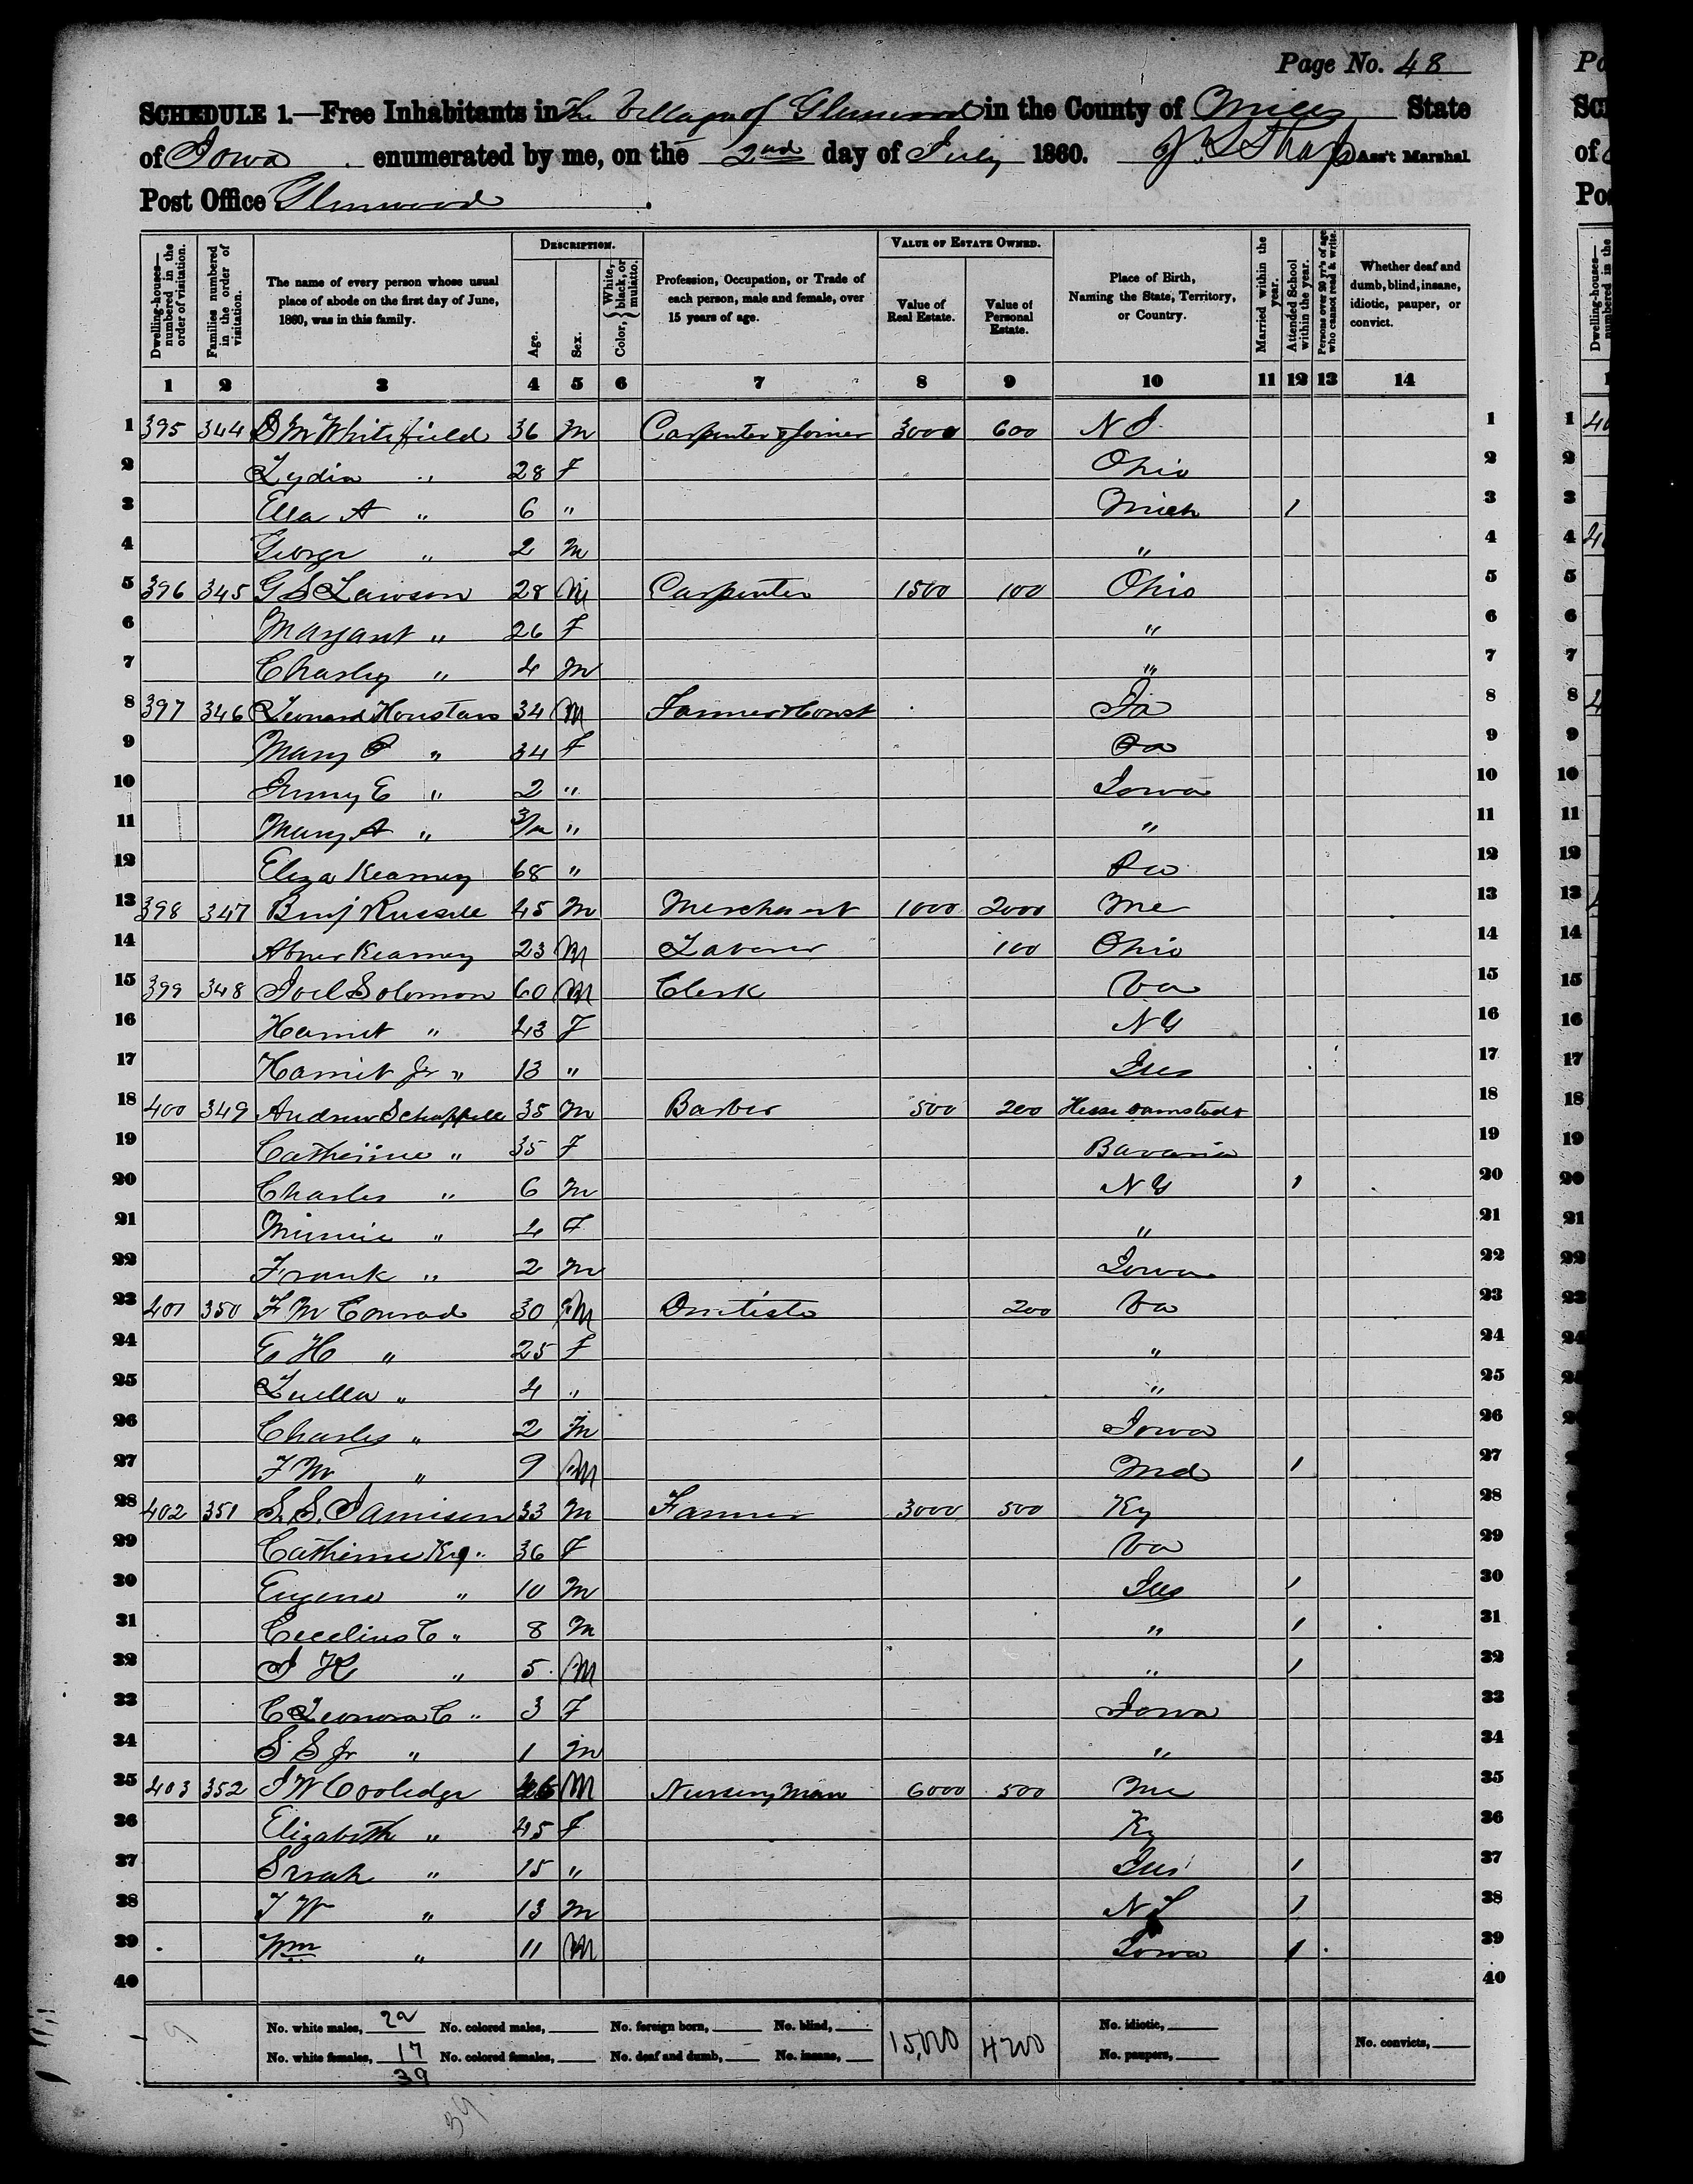 Page No. 48
SCHEDULE 1.—Free Inhabitants in The Village of Glenwood in the County of Mills State
of Iowa enumerated by me, on the 2nd day of July 1860. Ass't Marshal.
Post Office Glenwood
DESCRIPTION. VALUE OF ESTATE OWNED.
Dwelling-houses—numbered in the order of visitation. Families numbered in the order of visitation. The name of every person whose usual place of abode on the first day of June, 1860, was in this family. Age. Sex. Color, {White, black, or mulatto. Profession, Occupation, or Trade of each person, male and female, over 15 years of age. Value of Real Estate. Value of Personal Estate. Place of Birth, Naming the State, Territory, or Country. Married within the year. Attended School within the year. Persons over 20 yr's of age who cannot read & write. Whether deaf and dumb, blind, insane, idiotic, pauper, or convict.
1 2 3 4 5 6 7 8 9 10 11 12 13 14
1 395 344 Whitefield 36 M Carpenter & Joiner 3000 600 N J 1
2 Lydia " 28 F Ohio 2
3 Ella A " 6 " Mich 1 3
4 George " 2 M " 4
5 396 345 G S Lawson 28 M Carpenter 1500 100 Ohio 5
6 Margaret " 26 F " 6
7 Charley " 4 M " 7
8 397 346 Leonard 34 M 8
9 Mary " 34 F Pa 9
10 E " 2 " Iowa 10
11 Mary A " 3/12 " " 11
12 Eliza Kearney 68 " Pa 12
13 398 347 Benj Russell 45 M Merchant 1000 2000 Me 13
14 Abner Kearney 23 M Laborer 100 Ohio 14
15 399 348 Joel Solomon 60 M Clerk Va 15
16 Harriet " 43 F N Y 16
17 Harriet Jr " 13 " Ills 17
18 400 349 Andrew 35 M Barber 500 200 Hesse Darmstadt 18
19 Catherine " 35 F Bavaria 19
20 Charles " 6 M N Y 1 20
21 Minnie " 4 F " 21
22 Frank " 2 M Iowa 22
23 401 350 F M Conrad 30 M Dentist 200 Va 23
24 E H " 25 F " 24
25 Luella " 4 " " 25
26 Charles " 2 M Iowa 26
27 F M " 9 M Md 1 27
28 402 351 S. S. Jamison 33 M Farmer 3000 500 Ky 28
29 Catherine " 36 F Va 29
30 Eugene " 10 M Ills 1 30
31 C " 8 M " 1 31
32 J K " 5 M " 1 32
33 C Leonora C " 3 F Iowa 33
34 S S Jr " 1 M " 34
35 403 352 J W Coolidge 46 M Nursery Man 6000 500 Me 35
36 Elizabeth " 45 F Ky 36
37 Sarah " 15 " Ills 1 37
38 J W " 13 M 1 38
39 Wm " 11 M Iowa 1 39
40 40
No. white males, 22 No. colored males, No. foreign born, No. blind, 15,000 4700 No. idiotic,
No. white females, 17 No. colored females, No. deaf and dumb, No. insane, No. paupers, No. convicts,
39
39